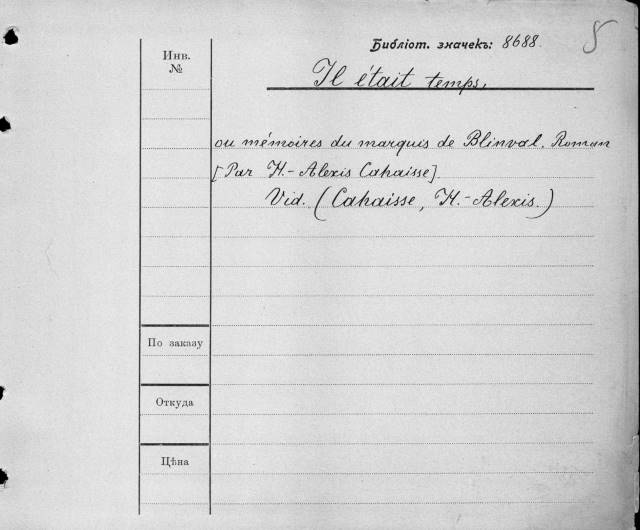 Библіот. значекъ: 8688.
Инв.
№
Il était temps,
ou mémoires du marquis de Blinval. Roman
[Par H.-Alexis Cahaisse].
Vid. (Cahaisse, H.-Alexis.)
По заказу
Откуда
Цѣна